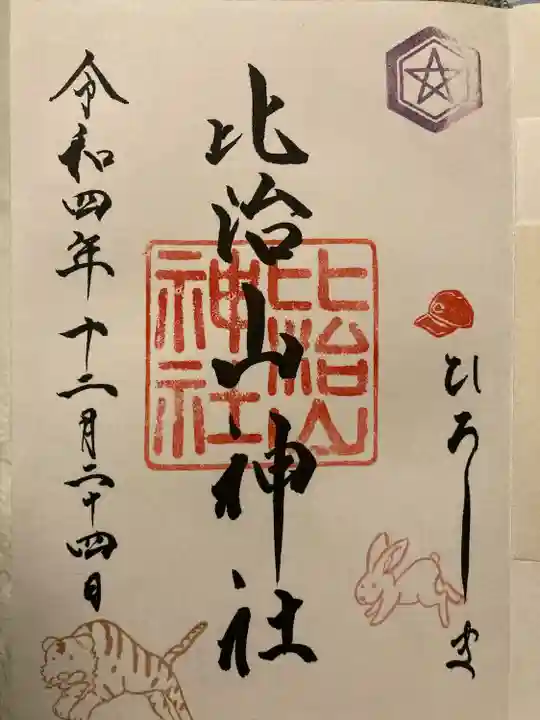 ひろしま
比治山神社
比治山
神社
令和四年十二月二十四日
C